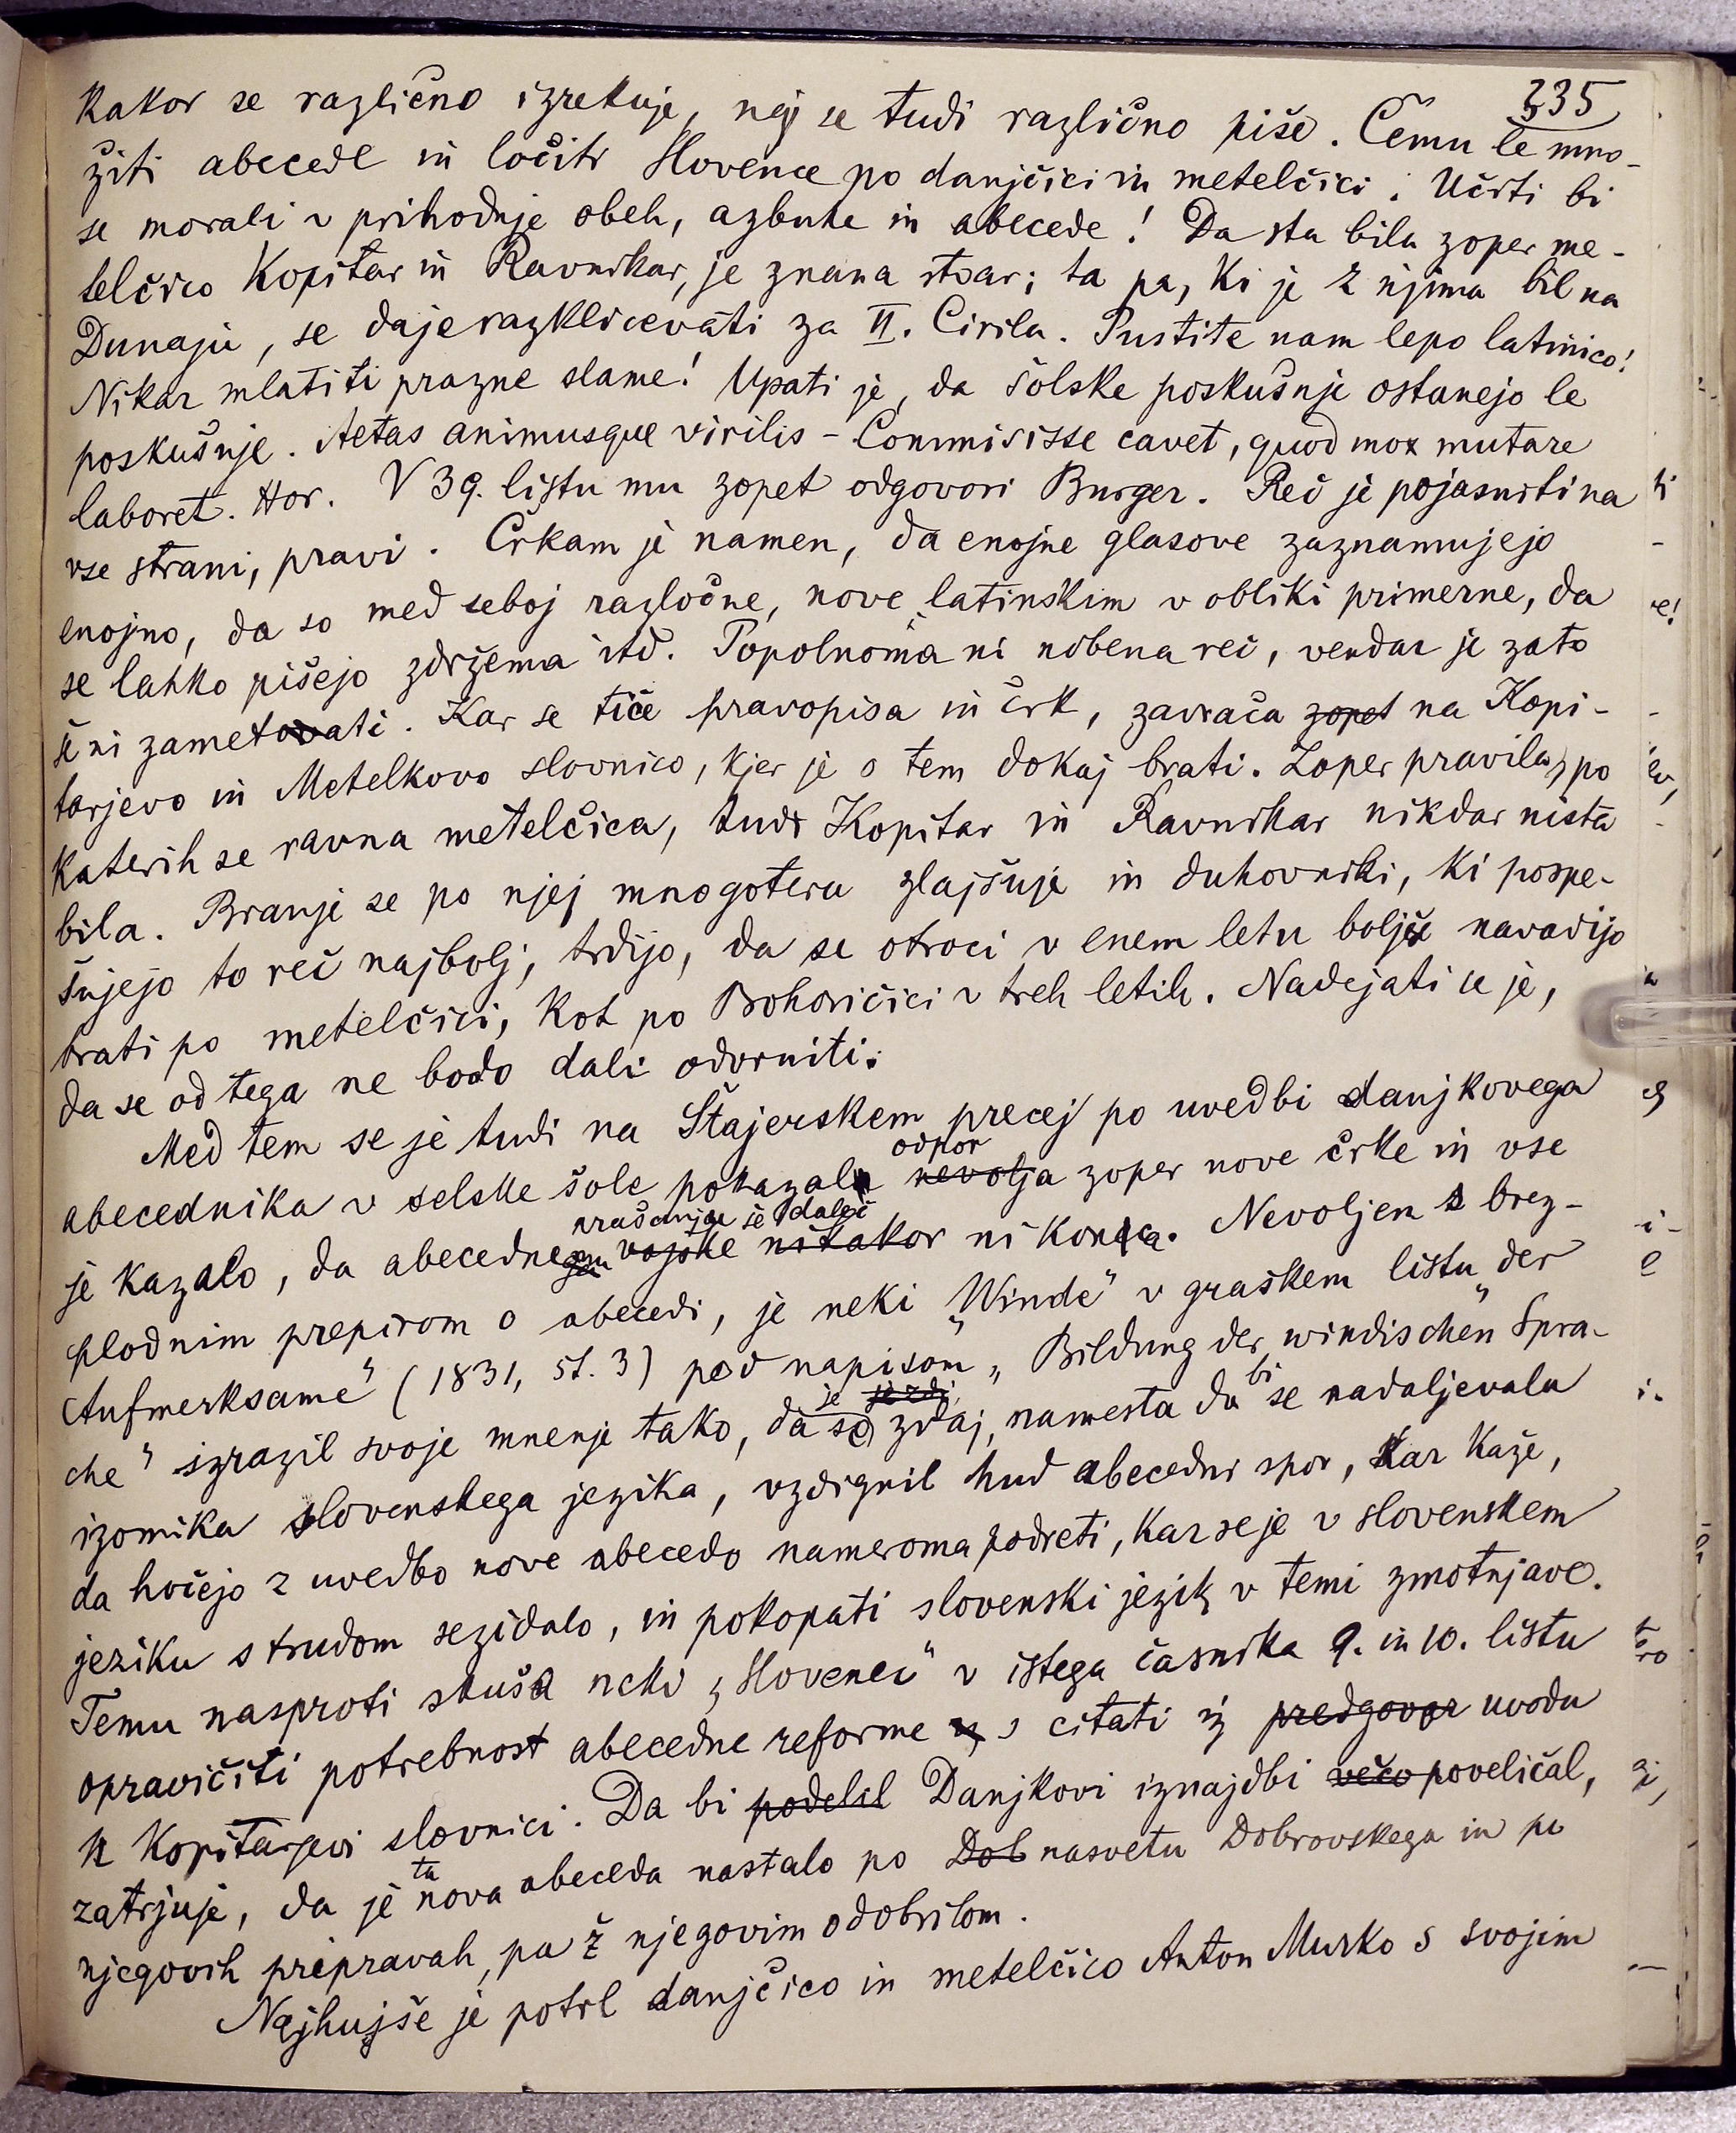 335
Kakor se različno izrekuje, nej se tudi različno piše. Čemu le mno-
žiti abecede in ločiti Slovence po danjčici in metelčici. Učiti bi
se morali v prihodnje obeh, azbuke in abecede! Da sta bila zoper me-
telčico Kopitar in Ravnikar, je znana stvar; ta pa, ki je z njima bil na
Dunaju, se daje razklicevati za II. Cirila. Pustite nam lepo latinico!
Nikar mlatiti prazne slame! Upati je, da šolske poskušnje ostanejo le
poskušnje. Aetas animusque virilis – Commisisse cavet, quod mox mutare
laboret. Hor. V 39. listu mu zopet odgovori Burger. Reč je pojasniti na
vse strani, pravi. Črkam je namen, da enojne glasove zaznamujejo
enojno, da so med seboj razločne, nove latinskim v obliki primerne, da
se lahko pišejo zdržema itd. Popolnoma ni nobena reč, vendar je zato
še ni zametovati. Kar se tiče pravopisa in črk, zavrača zopet na Kopi-
tarjevo in Metelkovo slovnico, kjer je o tem dokaj brati. Zoper pravila, po
katerih se ravna metelčica, tudi Kopitar in Ravnikar nikdar nista
bila. Branje se po njej mnogotera zlajšuje in duhovniki, ki pospe-
šujejo to reč najbolj, trdijo, da se otroci v enem letu boljše navadijo
brati po metelčici, kot po Bohoričici v treh letih. Nadejati se je,
da se od tega ne bodo dali odvrniti.
Med tem se je tudi na Štajerskem precej po uvedbi danjkovega
odpor
abecednika v selske šole pokazal nevolja zoper nove črke in vse
vrašanje še daleč
je kazalo, da abecednem vojske nikakor ni konca. Nevoljen s brez-
plodnim prepirom o abecedi, je neki „Winde“ v graškem listu „der
Aufmerksame“ (1831, št. 3) pod napisom „Bildung der windischen Spra-
je je zdi bi
che“ izrazil svoje mnenje tako, da se zdaj, namesta da se nadaljevala
izomika slovenskega jezika, vzdignil hud abecedni spor, kar kaže,
da hočejo z uvedbo nove abecedo nameroma podreti, kar se je v slovenskem
jeziku s trudom sezidalo, in pokopati slovenski jezik v temi zmotnjave.
Temu nasproti skuša neki „Slovenec“ v istega časnika 9. in 10. listu
opravičiti potrebnost abecedne reforme s citati iz predgovor uvoda
k Kopitarjevi slovnici. Da bi podelil Danjkovi iznajdbi večo poveličal,
ta
zatrjuje, da je nova abeceda nastalo po Dob nasvetu Dobrovskega in po
njegovih pripravah, pa ž njegovim odobrilom.
Najhujše je potrl danjčico in metelčico Anton Murko s svojim